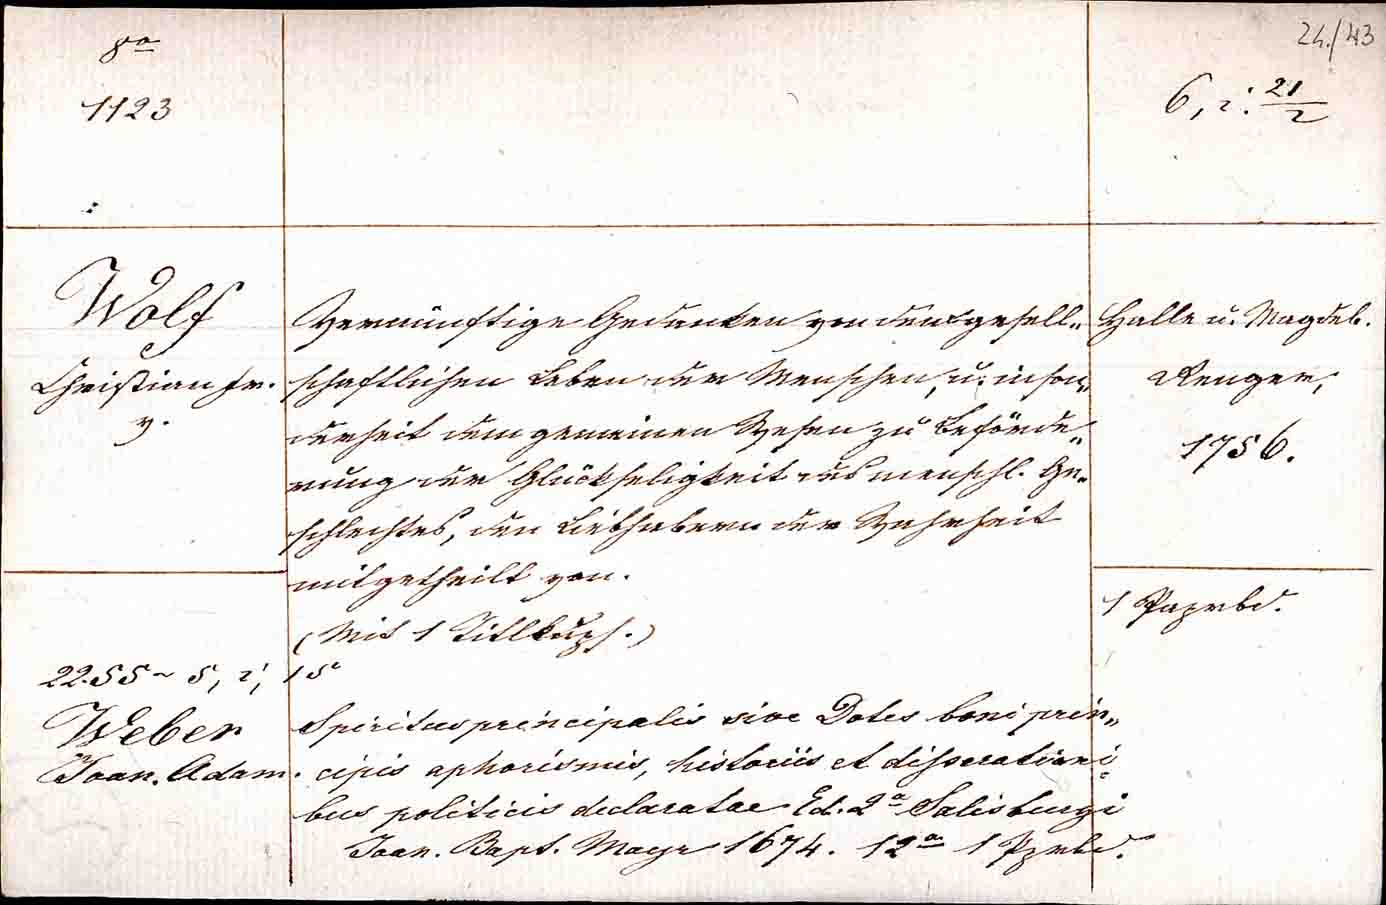 24./43
8º
1123
6, 2: 21/2
Wolf
Christian Fr. v.
Vernünftige Gedanken von dem gesell-
schaftlichen Leben der Menschen, u. inson-
derheit dem gemeinen Wesen zu Beförde-
rung der Glückseligkeit des menschl. Ge-
schlechtes, den Liebhabern der Wahrheit
mitgetheilt von.
(Mit 1 Titlkupf.)
Halle u. Magdeb.
Renger,
1756.
1 Paprbd.
22.55 ~ 5, 2, 15
Weber
Joan. Adam.
Spiritus principalis sive Dotes boni prin-
cipis aphorismis, historiis et dissertationi-
bus politicis declaratae Ed. 2ª Salisburgi
Joan. Bapt. Mayr 1674. 12º 1 Pprbd.